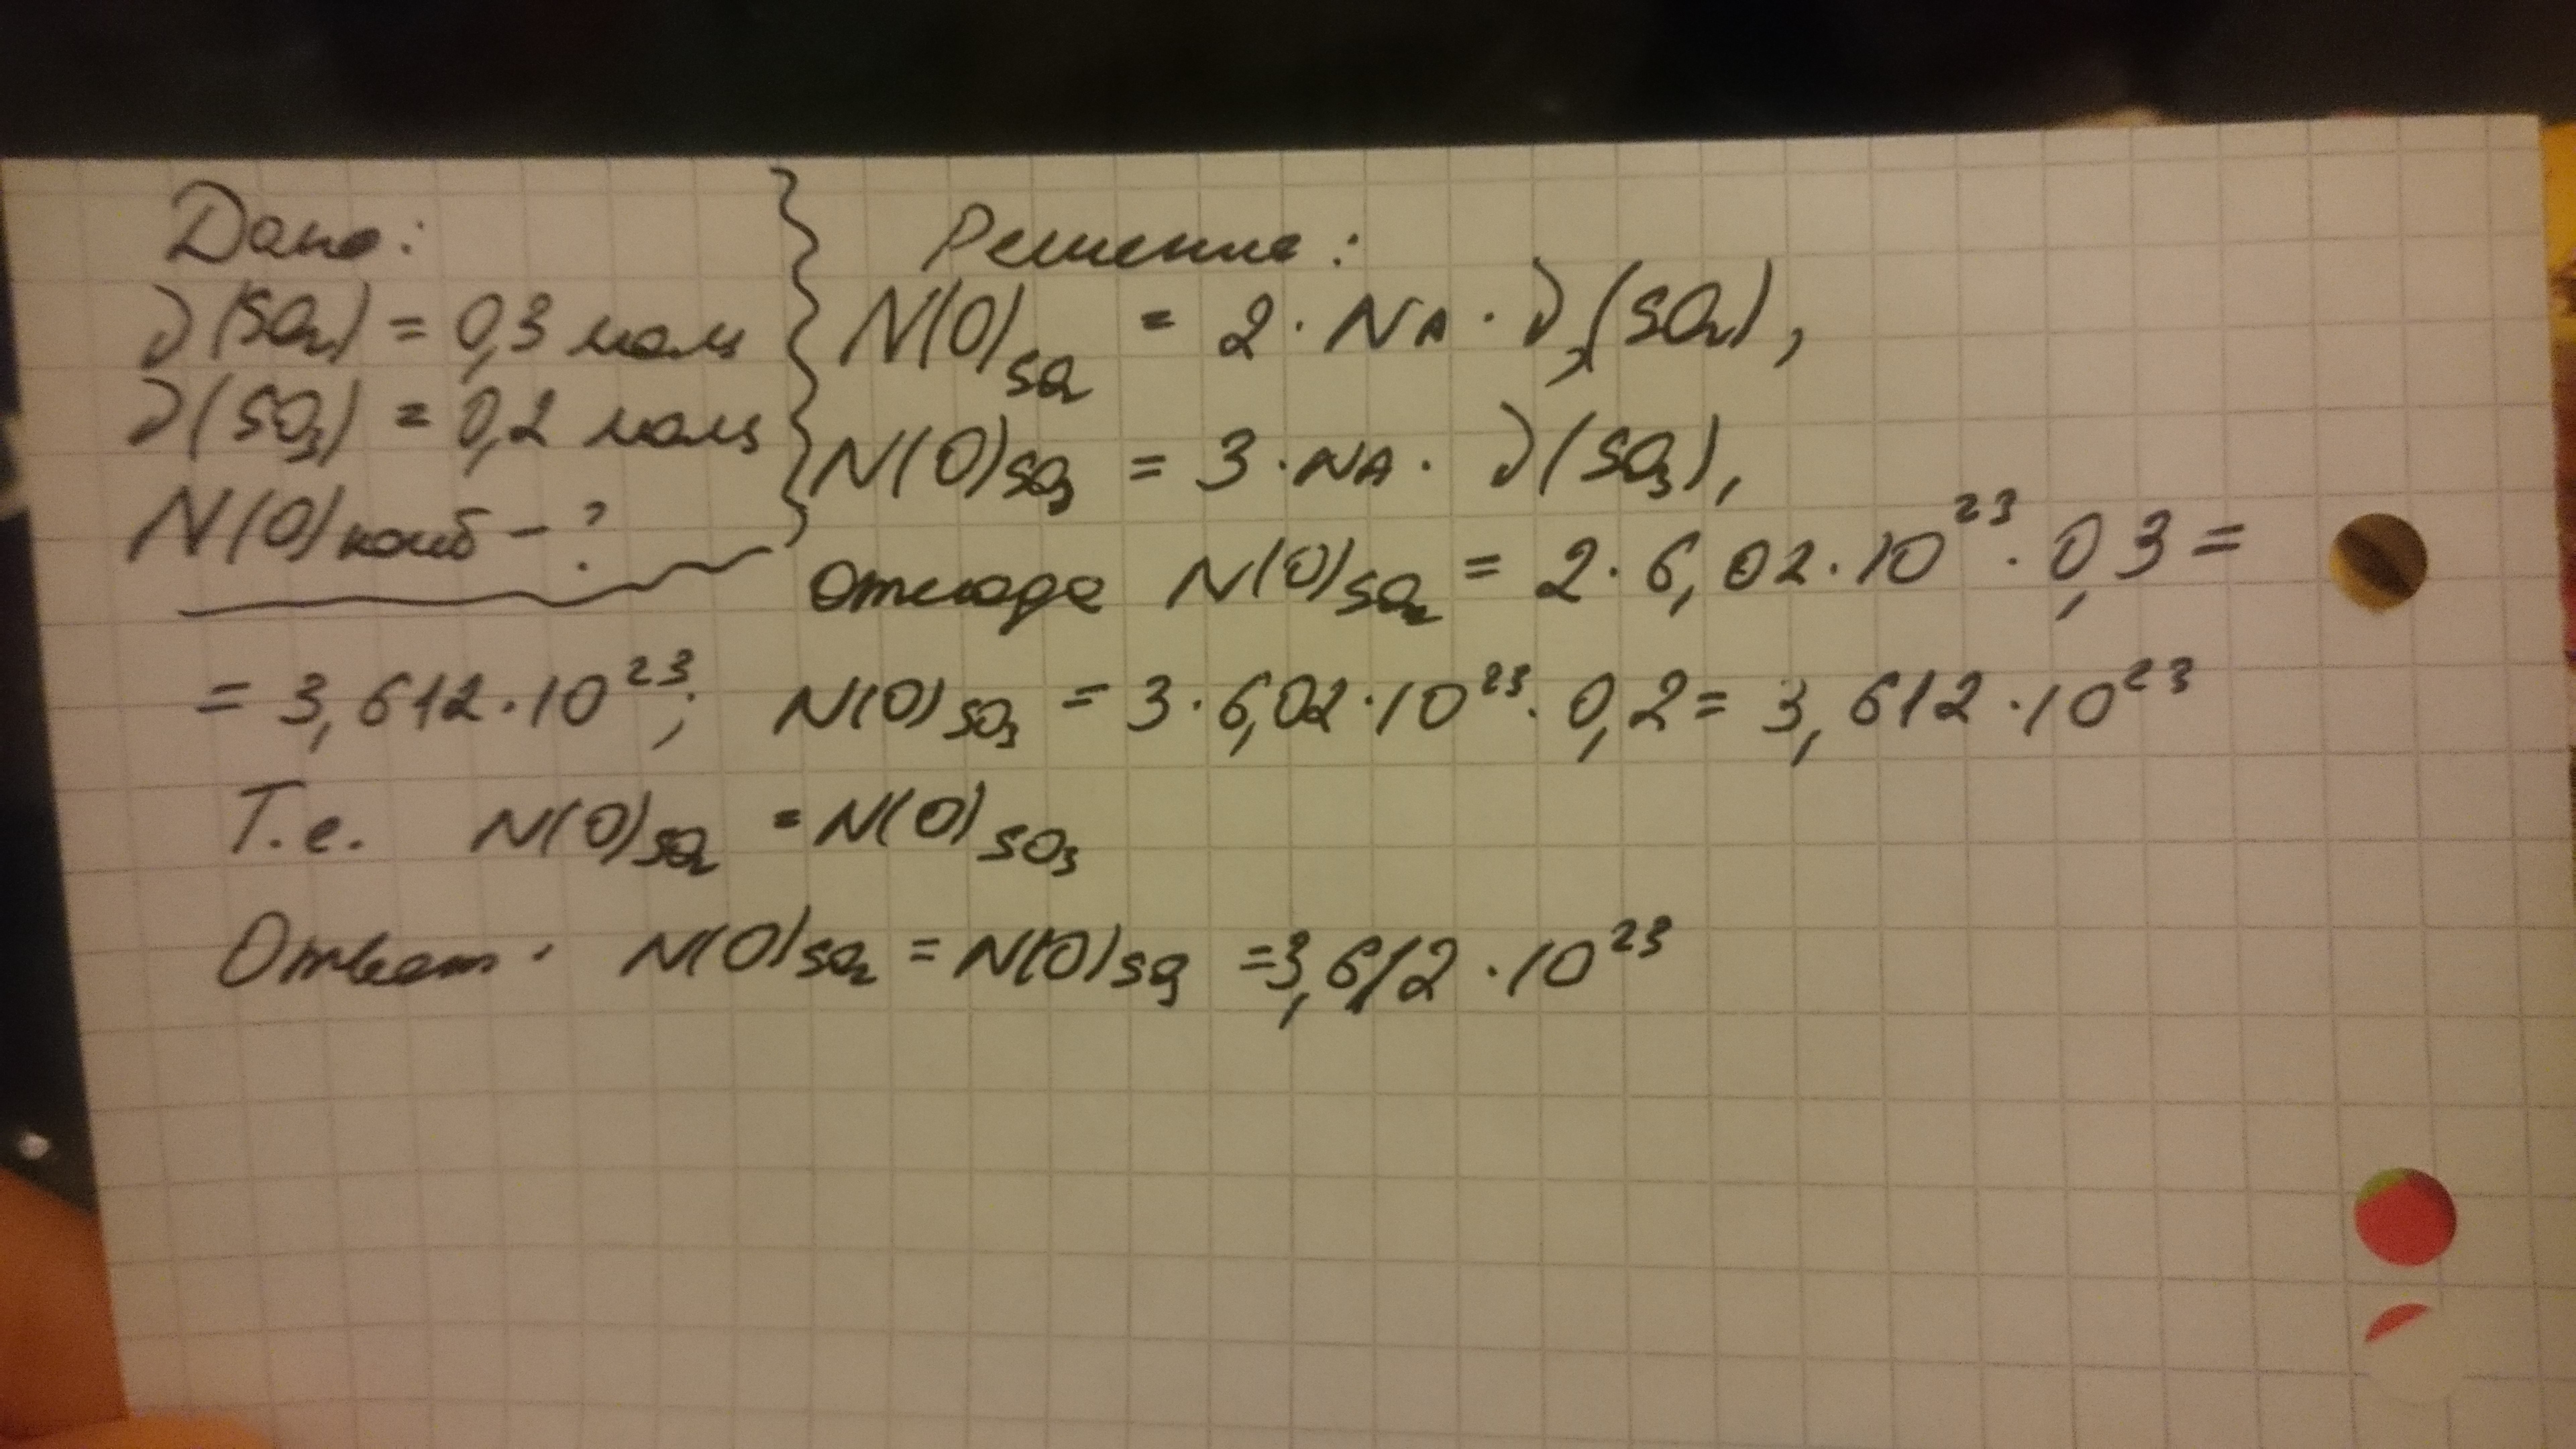 Дано:
ν(SO₂) = 0,3 моль
ν(SO₃) = 0,2 моль
N(O)наиб - ?
Решение:
N(O)SO₂ = 2 · NA · ν(SO₂),
N(O)SO₃ = 3 · NA · ν(SO₃),
Отсюда N(O)SO₂ = 2 · 6,02 · 10²³ · 0,3 =
= 3,612 · 10²³; N(O)SO₃ = 3 · 6,02 · 10²³ · 0,2 = 3,612 · 10²³
Т.е. N(O)SO₂ = N(O)SO₃
Ответ: N(O)SO₂ = N(O)SO₃ = 3,612 · 10²³